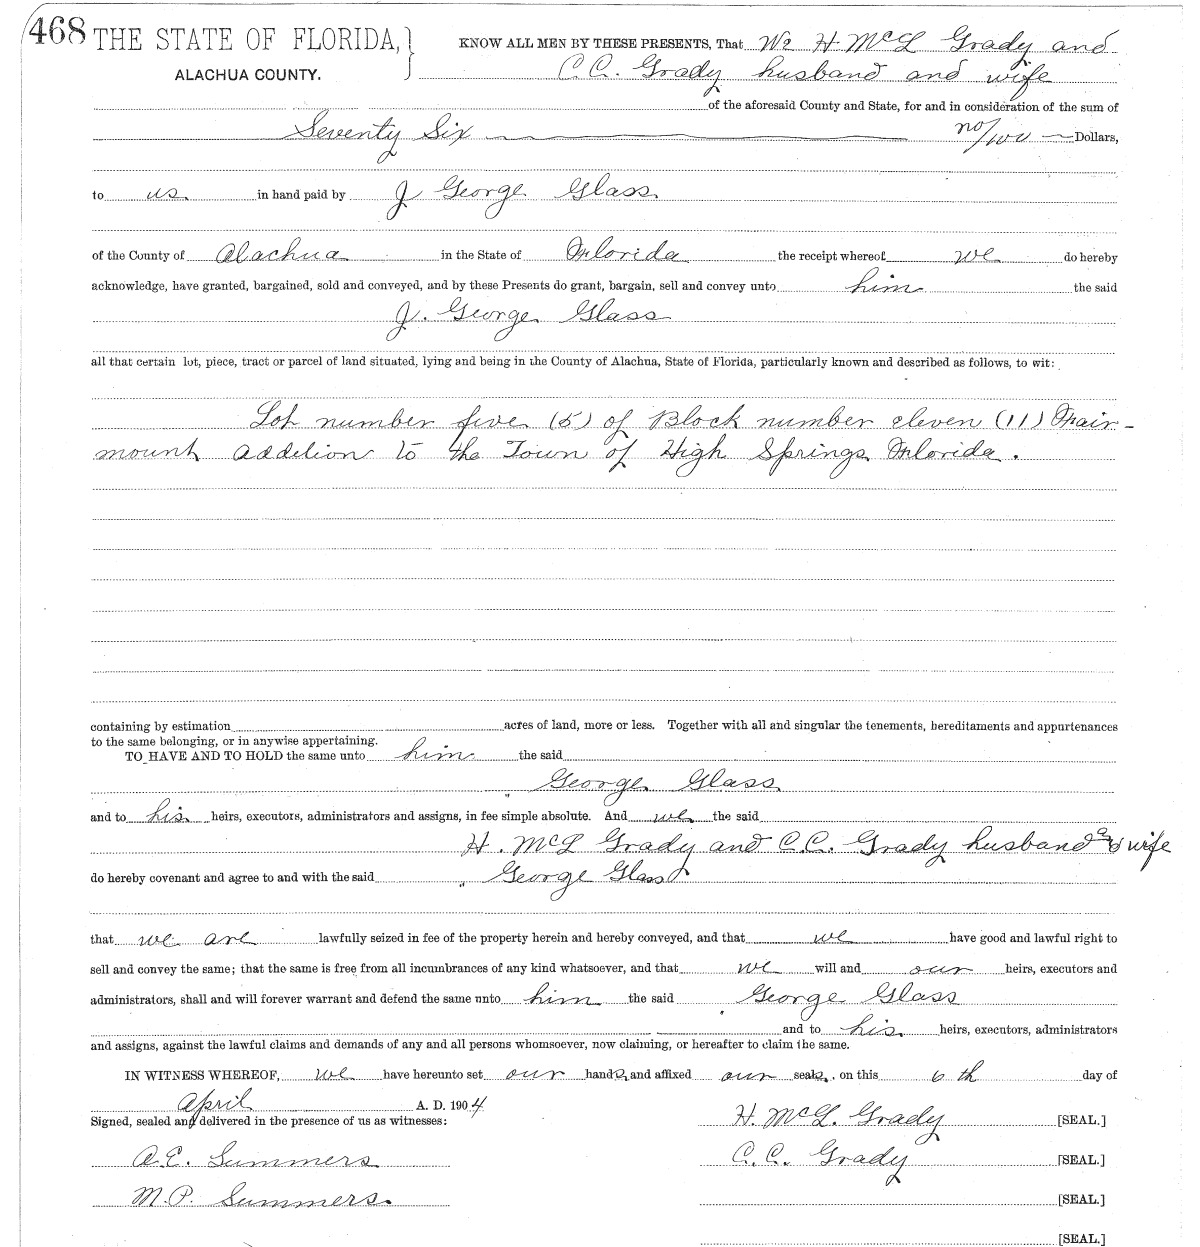 468 THE STATE OF FLORIDA, KNOW ALL MEN BY THESE PRESENTS, That We H McL Grady and
ALACHUA COUNTY. C.C. Grady husband and wife
of the aforesaid County and State, for and in consideration of the sum of
Seventy Six no/100 Dollars,
to us in hand paid by J George Glass
of the County of Alachua in the State of Florida the receipt whereof we do hereby
acknowledge, have granted, bargained, sold and conveyed, and by these Presents do grant, bargain, sell and convey unto him the said
J. George Glass
all that certain lot, piece, tract or parcel of land situated, lying and being in the County of Alachua, State of Florida, particularly known and described as follows, to wit:
Lot number five (5) of Block number eleven (11) Fair-
mount addition to the Town of High Springs Florida.
containing by estimation acres of land, more or less. Together with all and singular the tenements, hereditaments and appurtenances
to the same belonging, or in anywise appertaining.
TO HAVE AND TO HOLD the same unto him the said
George Glass
and to his heirs, executors, administrators and assigns, in fee simple absolute. And we the said
H. McL Grady and C.C. Grady husband and wife
do hereby covenant and agree to and with the said George Glass
that we are lawfully seized in fee of the property herein and hereby conveyed, and that we have good and lawful right to
sell and convey the same; that the same is free from all incumbrances of any kind whatsoever, and that we will and our heirs, executors and
administrators, shall and will forever warrant and defend the same unto him the said George Glass
and to his heirs, executors, administrators
and assigns, against the lawful claims and demands of any and all persons whomsoever, now claiming, or hereafter to claim the same.
IN WITNESS WHEREOF, we have hereunto set our hands and affixed our seals, on this 6th day of
April A. D. 1904
Signed, sealed and delivered in the presence of us as witnesses: H. McL. Grady [SEAL.]
A.E. Summers C.C. Grady [SEAL.]
M.P. Summers. [SEAL.]
[SEAL.]